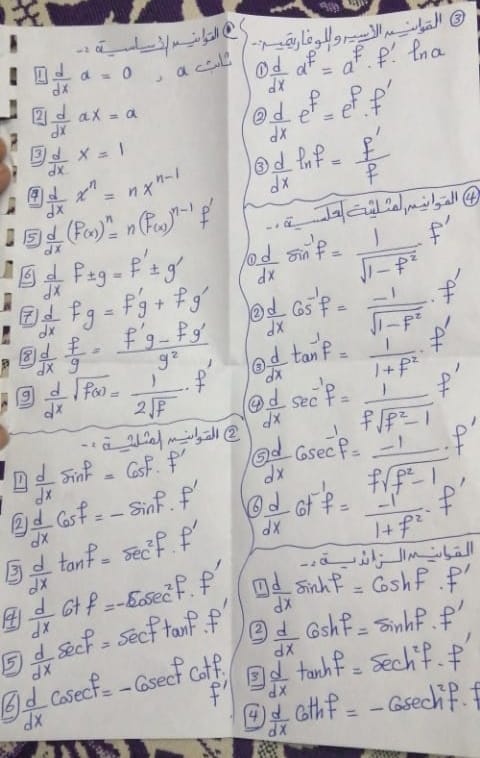 ① القوانين الأساسية :-
1 d/dx a = 0 , a ثابت
2 d/dx ax = a
3 d/dx x = 1
4 d/dx xⁿ = n xⁿ⁻¹
5 d/dx (f(x))ⁿ = n(f(x))ⁿ⁻¹ f′
6 d/dx f ± g = f′ ± g′
7 d/dx f g = f′g + f g′
8 d/dx f/g = (f′g - f g′)/g²
9 d/dx √f(x) = 1/(2√f) . f′
② القوانين المثلثية :-
1 d/dx sinf = Cosf . f′
2 d/dx Cosf = - sinf . f′
3 d/dx tanf = sec²f . f′
4 d/dx Cot f = -Cosec²f . f′
5 d/dx secf = secf tanf . f′
6 d/dx Cosecf = - Cosecf Cotf . f′
③ القوانين الأسية واللوغارتمية :-
① d/dx aᶠ = aᶠ . f′ . lna
② d/dx eᶠ = eᶠ . f′
③ d/dx lnf = f′/f
④ القوانين المثلثية العكسية :-
① d/dx sin⁻¹f = 1/√(1-f²) . f′
② d/dx Cos⁻¹f = -1/√(1-f²) . f′
③ d/dx tan⁻¹f = 1/(1+f²) . f′
④ d/dx sec⁻¹f = 1/(f√(f²-1)) . f′
⑤ d/dx Cosec⁻¹f = -1/(f√(f²-1)) . f′
⑥ d/dx Cot⁻¹f = -1/(1+f²) . f′
القوانين الزائدية :-
1 d/dx sinhf = Coshf . f′
2 d/dx Coshf = sinhf . f′
3 d/dx tanhf = sech²f . f′
4 d/dx Cothf = - Cosech²f . f